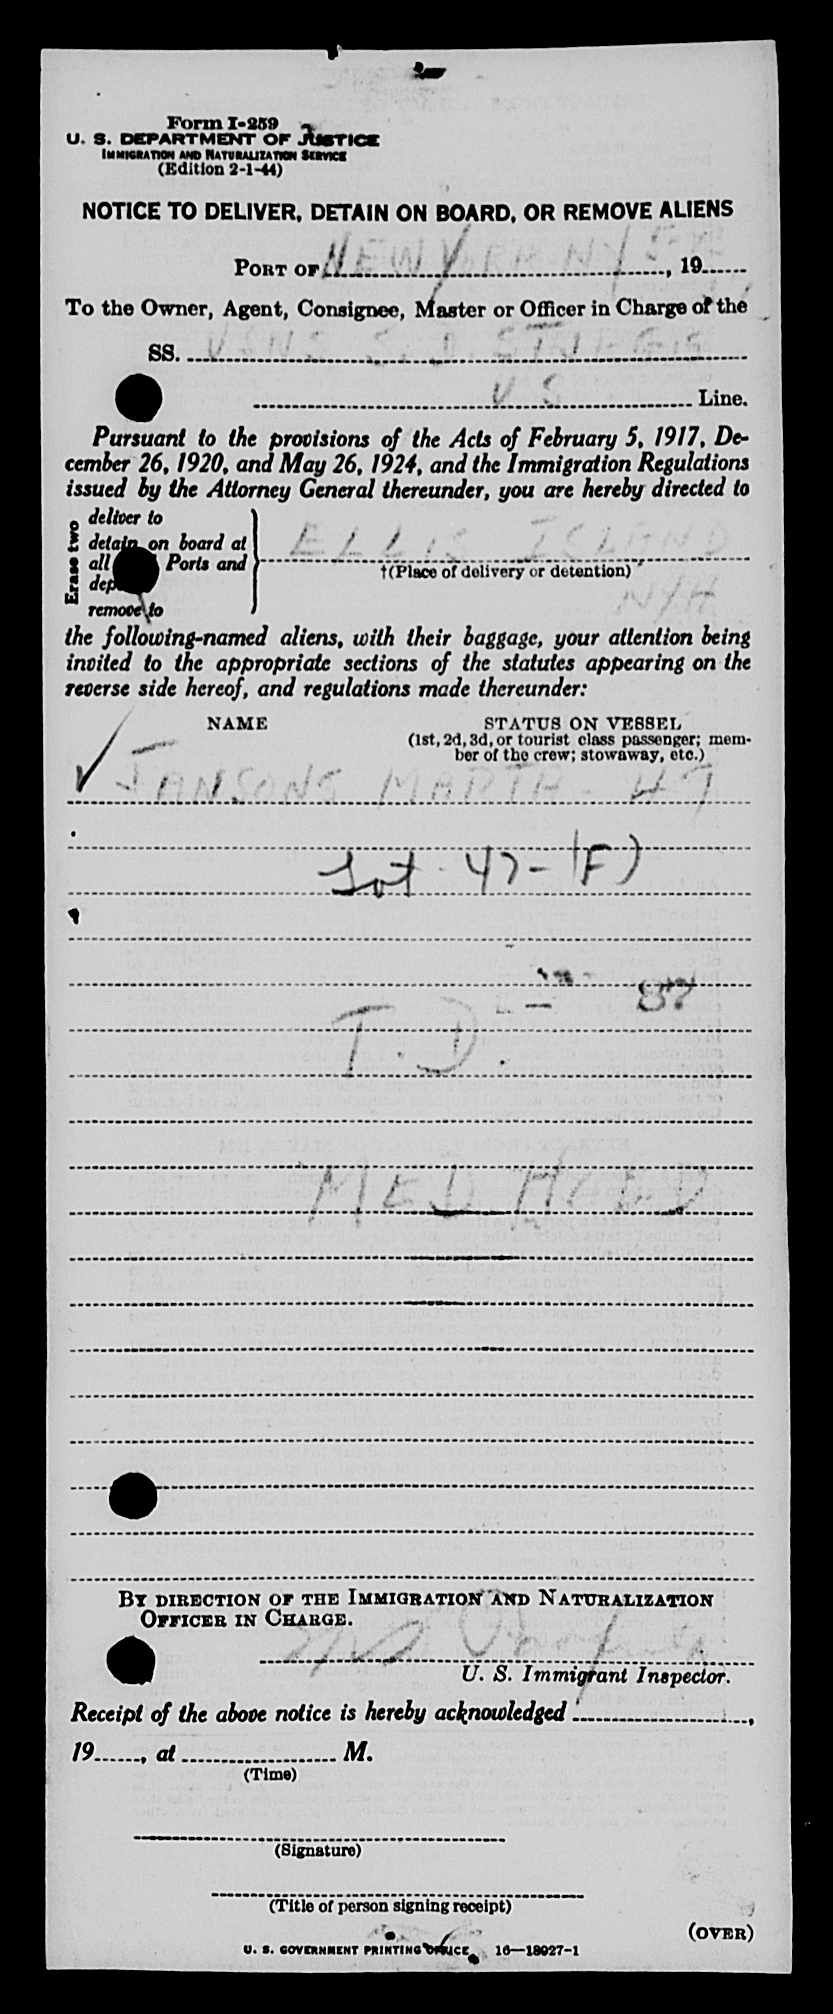 Form I-259
U. S. DEPARTMENT OF JUSTICE
IMMIGRATION AND NATURALIZATION SERVICE
(Edition 2-1-44)
NOTICE TO DELIVER, DETAIN ON BOARD, OR REMOVE ALIENS
PORT OF NEW YORK NY, 19
To the Owner, Agent, Consignee, Master or Officer in Charge of the
SS. USNS S. D. STURGIS
U S Line.
Pursuant to the provisions of the Acts of February 5, 1917, De-
cember 26, 1920, and May 26, 1924, and the Immigration Regulations
issued by the Attorney General thereunder, you are hereby directed to
Erase two
deliver to
detain on board at
all Ports and
remove to
ELLIS ISLAND
†(Place of delivery or detention)
NYH
the following-named aliens, with their baggage, your attention being
invited to the appropriate sections of the statutes appearing on the
reverse side hereof, and regulations made thereunder:
NAME STATUS ON VESSEL
(1st, 2d, 3d, or tourist class passenger; mem-
ber of the crew; stowaway, etc.)
✓ JANSONS MARTA - 47
47-(F)
T. D.
MED HOLD
BY DIRECTION OF THE IMMIGRATION AND NATURALIZATION
OFFICER IN CHARGE.
U. S. Immigrant Inspector.
Receipt of the above notice is hereby acknowledged ,
19 , at M.
(Time)
(Signature)
(Title of person signing receipt)
(OVER)
U. S. GOVERNMENT PRINTING OFFICE 16—18027-1